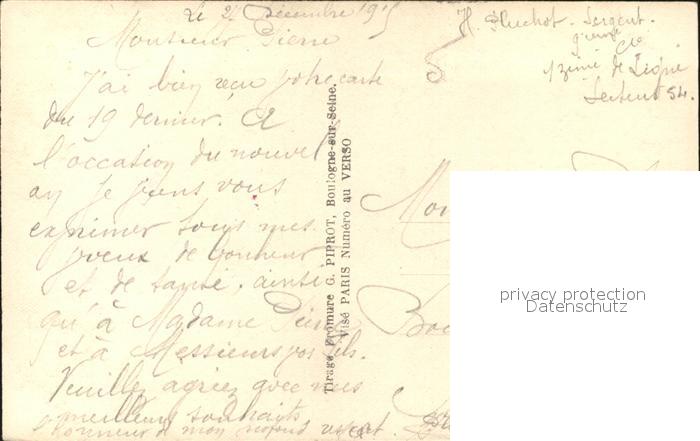 Le 2 Décembre 191
H. Huchot. Sergent.
Cie
de Ligne
Secteur 54.
Monsieur Pierre
J'ai bien reçu votre carte
du 19 dernier. A
l'occasion du nouvel
an je viens vous
exprimer tous mes
voeux de bonheur
et de santé. ainsi
qu'à Madame Pierre
et à Messieurs vos fils.
Veuillez agréez avec mes
meilleurs souhaits
de mon profond respect.
Tirage Bromure G. PIPROT, Boulogne-sur-Seine.
Visé PARIS Numéro au VERSO
Mon
privacy protection
Datenschutz